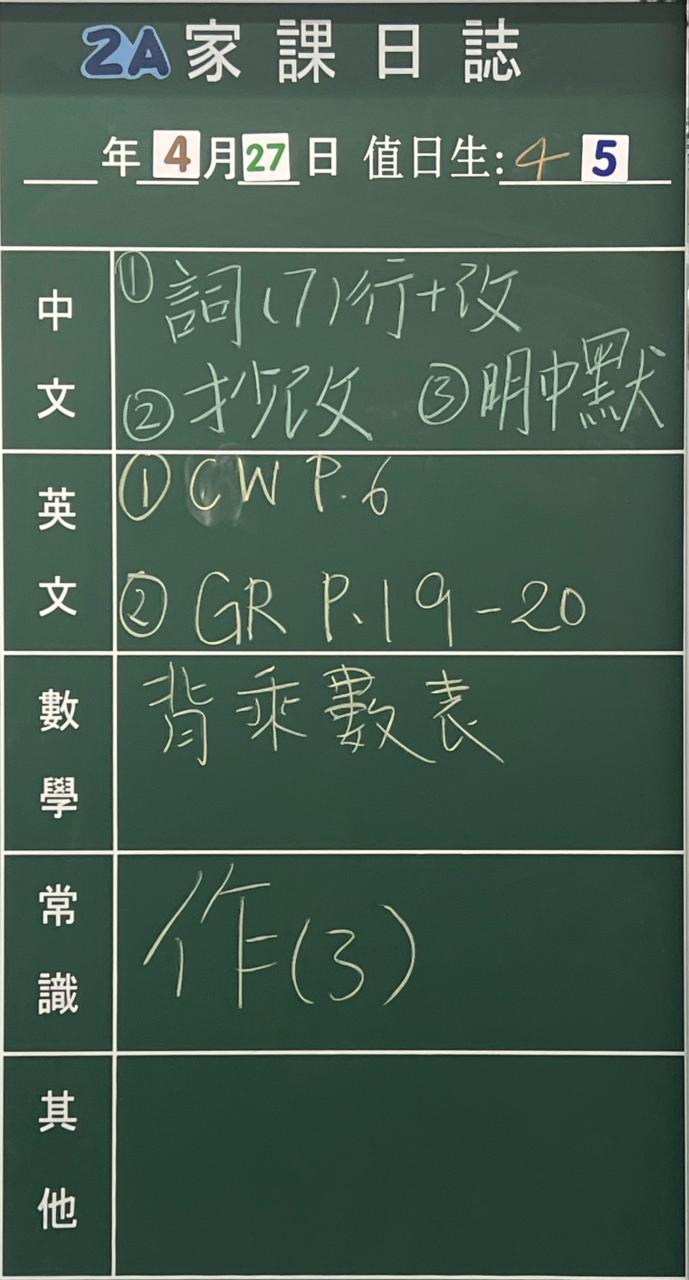 2A 家課日誌
年 4 月 27 日 值日生: 4 5
中文
① 詞(7)行+改
② 抄改 ③ 明中默
英文
① CW P.6
② GR P.19-20
數學
背乘數表
常識
作(3)
其他